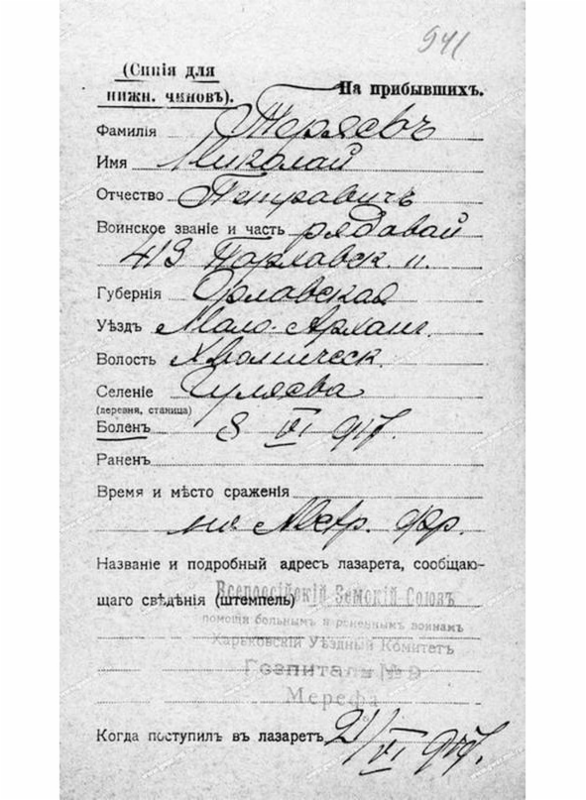 941
(Синія для
нижн. чиновъ).
На прибывшихъ.
Фамилія Теряевъ
Имя Николай
Отчество Петравичъ
Воинское званіе и часть рядавай
419 п.
Губернія Орлавская
Уѣздъ Мало-Архан.
Волость
Селеніе Гуляева
(деревня, станица)
Боленъ 8 VI 917.
Раненъ
Время и мѣсто сраженія
на Австр. фр.
Названіе и подробный адресъ лазарета, сообщаю-
щаго свѣдѣнія (штемпель)
Всероссійскій Земскій Союзъ
помощи больнымъ и раненымъ воинамъ
Харьковскій Уѣздный Комитетъ
Госпиталь № 9
Мерефа
Когда поступилъ въ лазаретъ 21/VI 917.